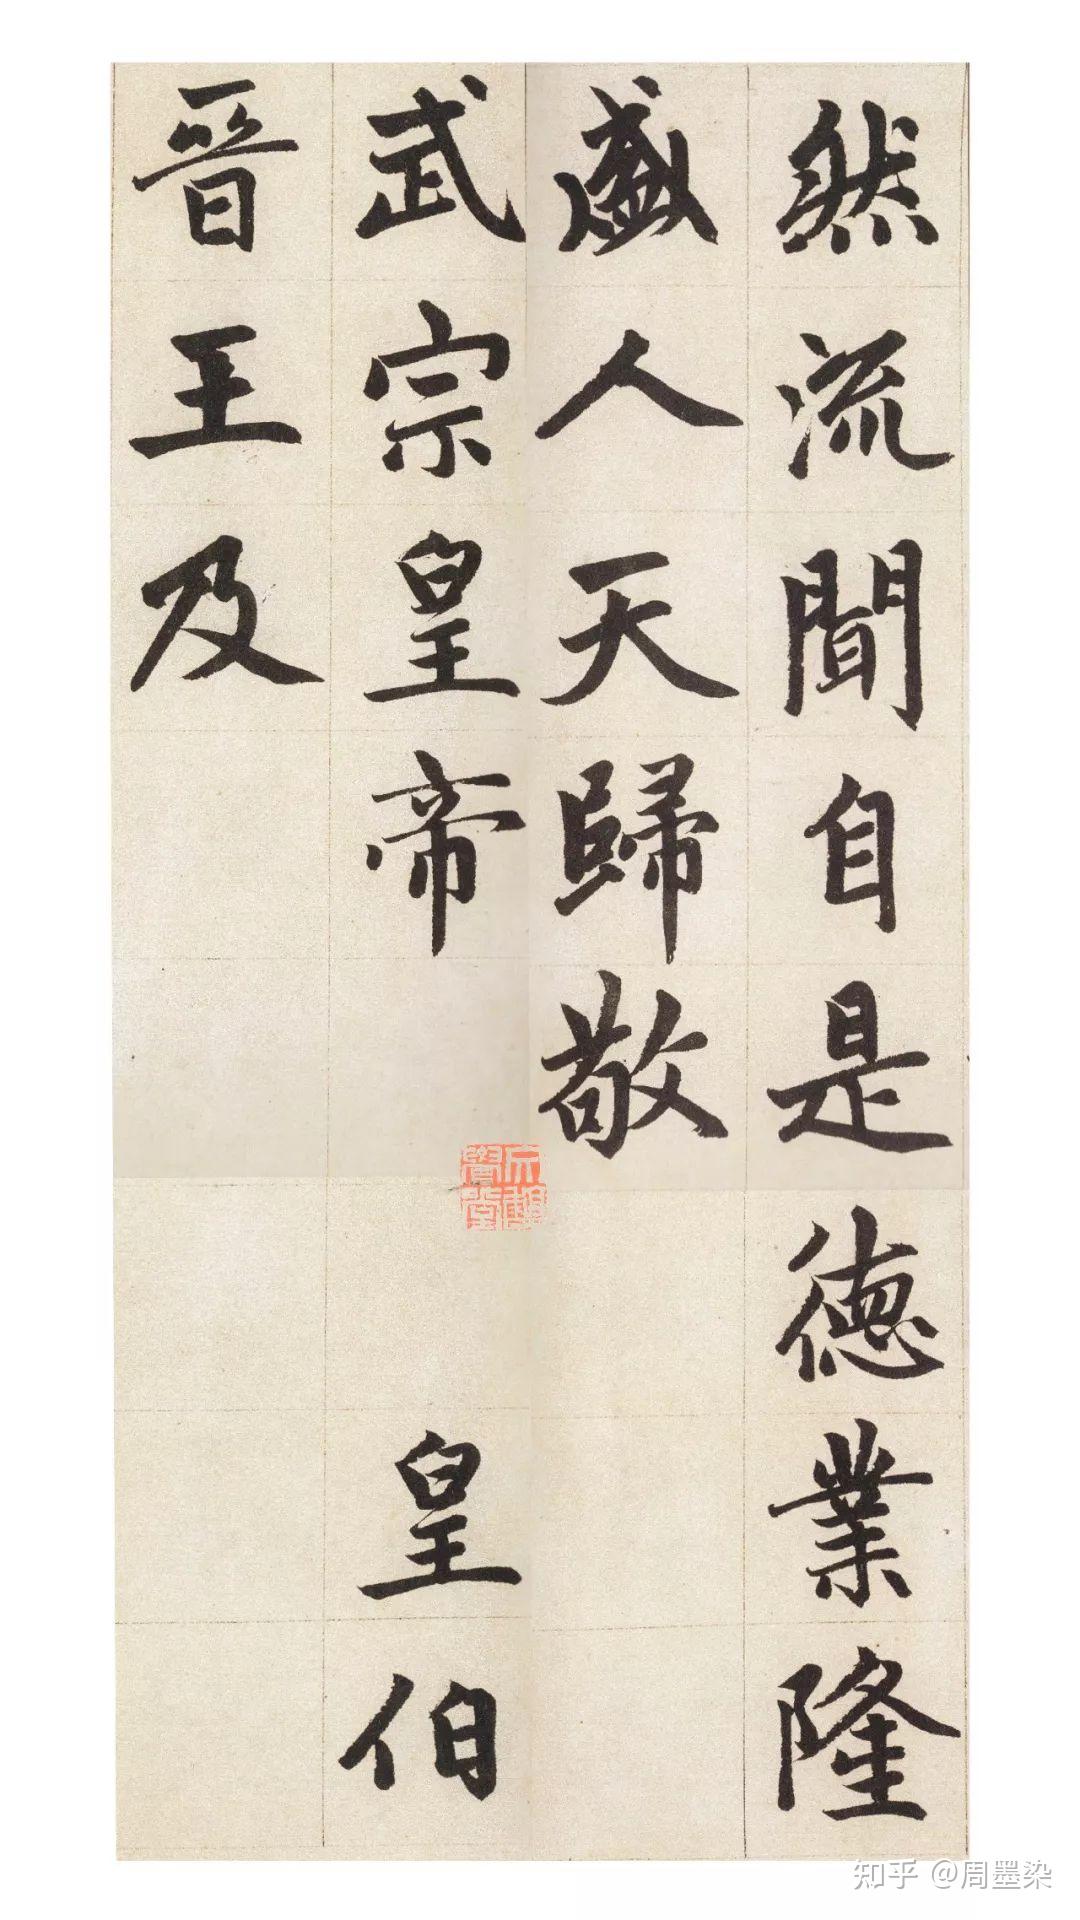 然流聞自是德業隆
盛人天歸敬
武宗皇帝 皇伯
晉王及
知乎 @周墨染